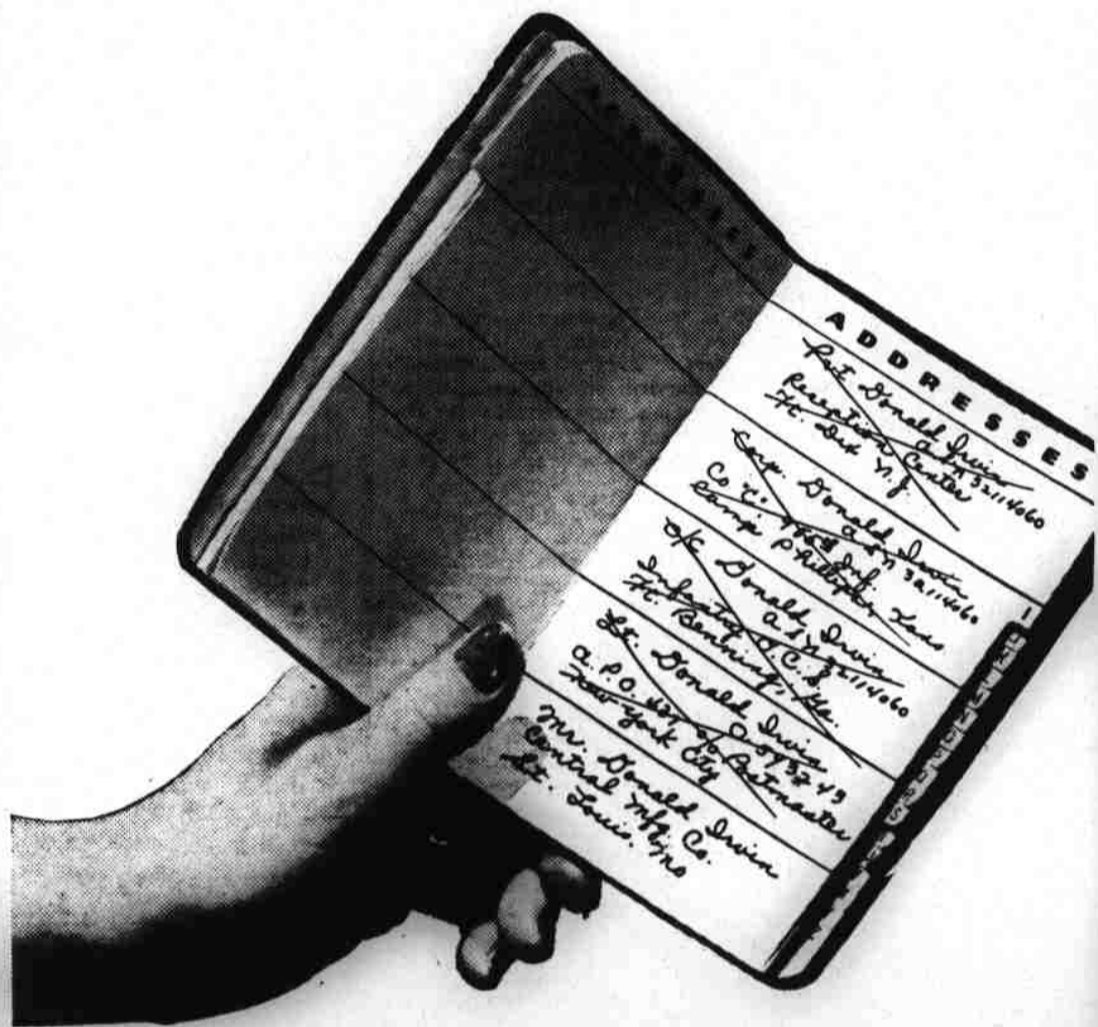 ADDRESSES
ADDRESSES
Pvt Donald Irvin
ASN 32114060
Reception Center
Ft. Dix N.J.
Corp. Donald Irvin
ASN 32114060
Co Inf.
Camp Phillips,
o/c Donald Irvin
ASN 32114060
Infantry O.C.S.
Ft. Benning, Ga.
Lt. Donald Irvin
A.P.O. c/o Postmaster
New York City
Mr. Donald Irvin
Central Mfg. Co.
St. Louis, Mo